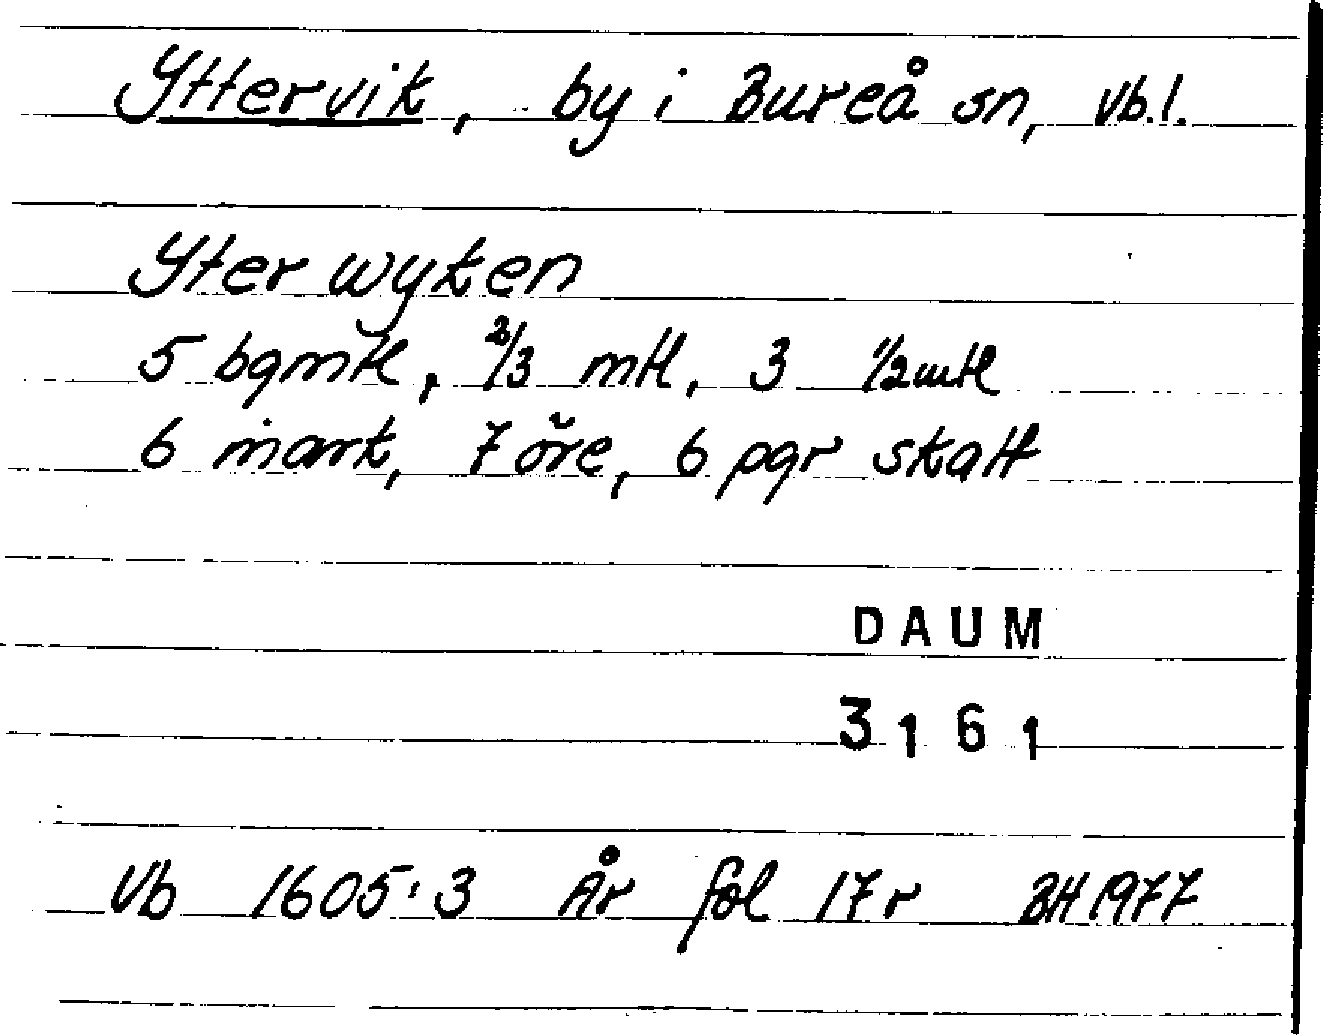 Yttervik, by i Bureå sn, Vb.l.
Yter wyken
5 bgmtl, 2/3 mtl, 3 1/2 mtl
6 mark, 7 öre, 6 pgr skatt
DAUM
3161
Vb 1605:3 År fol 17 r BH 1977